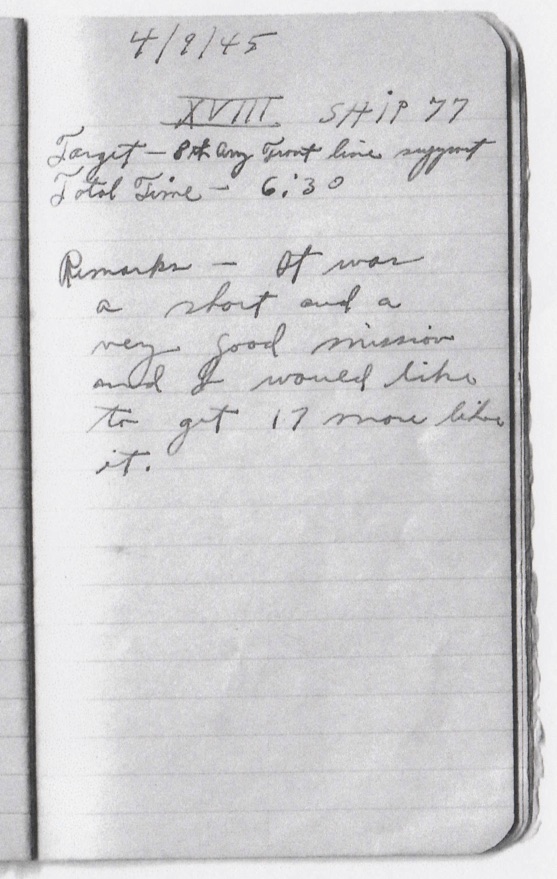 4/9/45
XVIII SHIP 77
Target - 8th Army Front line support
Total Time - 6:30
Remarks - It was
a short and a
very good mission
and I would like
to get 17 more like
it.